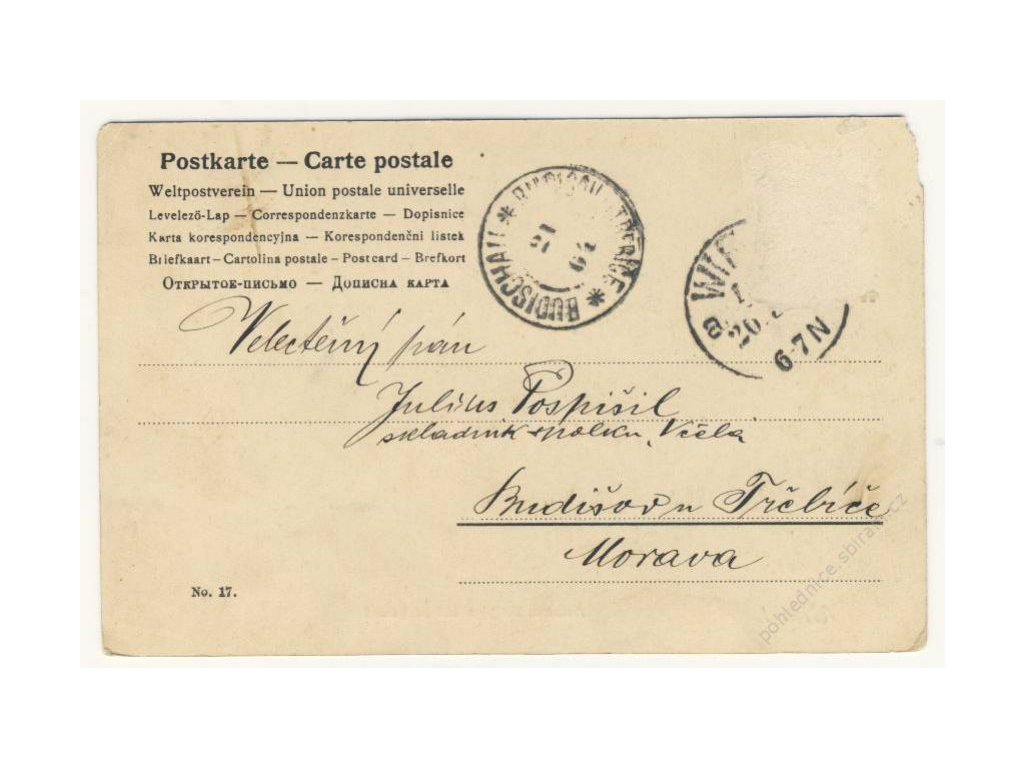 Postkarte — Carte postale
Weltpostverein — Union postale universelle
Levelező-Lap — Correspondenzkarte — Dopisnice
Karta korespondencyjna — Korespondenční listek
Briefkaart — Cartolina postale — Postcard — Brefkort
Открытое-письмо — Дописна карта
BUDISCHAU
21
64
WIE
20
6-7N
8
Velectěný pán
Julius Pospíšil
skladník spolku „Včela
Budišov u Třebíče
Morava
No. 17.
pohlednice.sbiram.cz